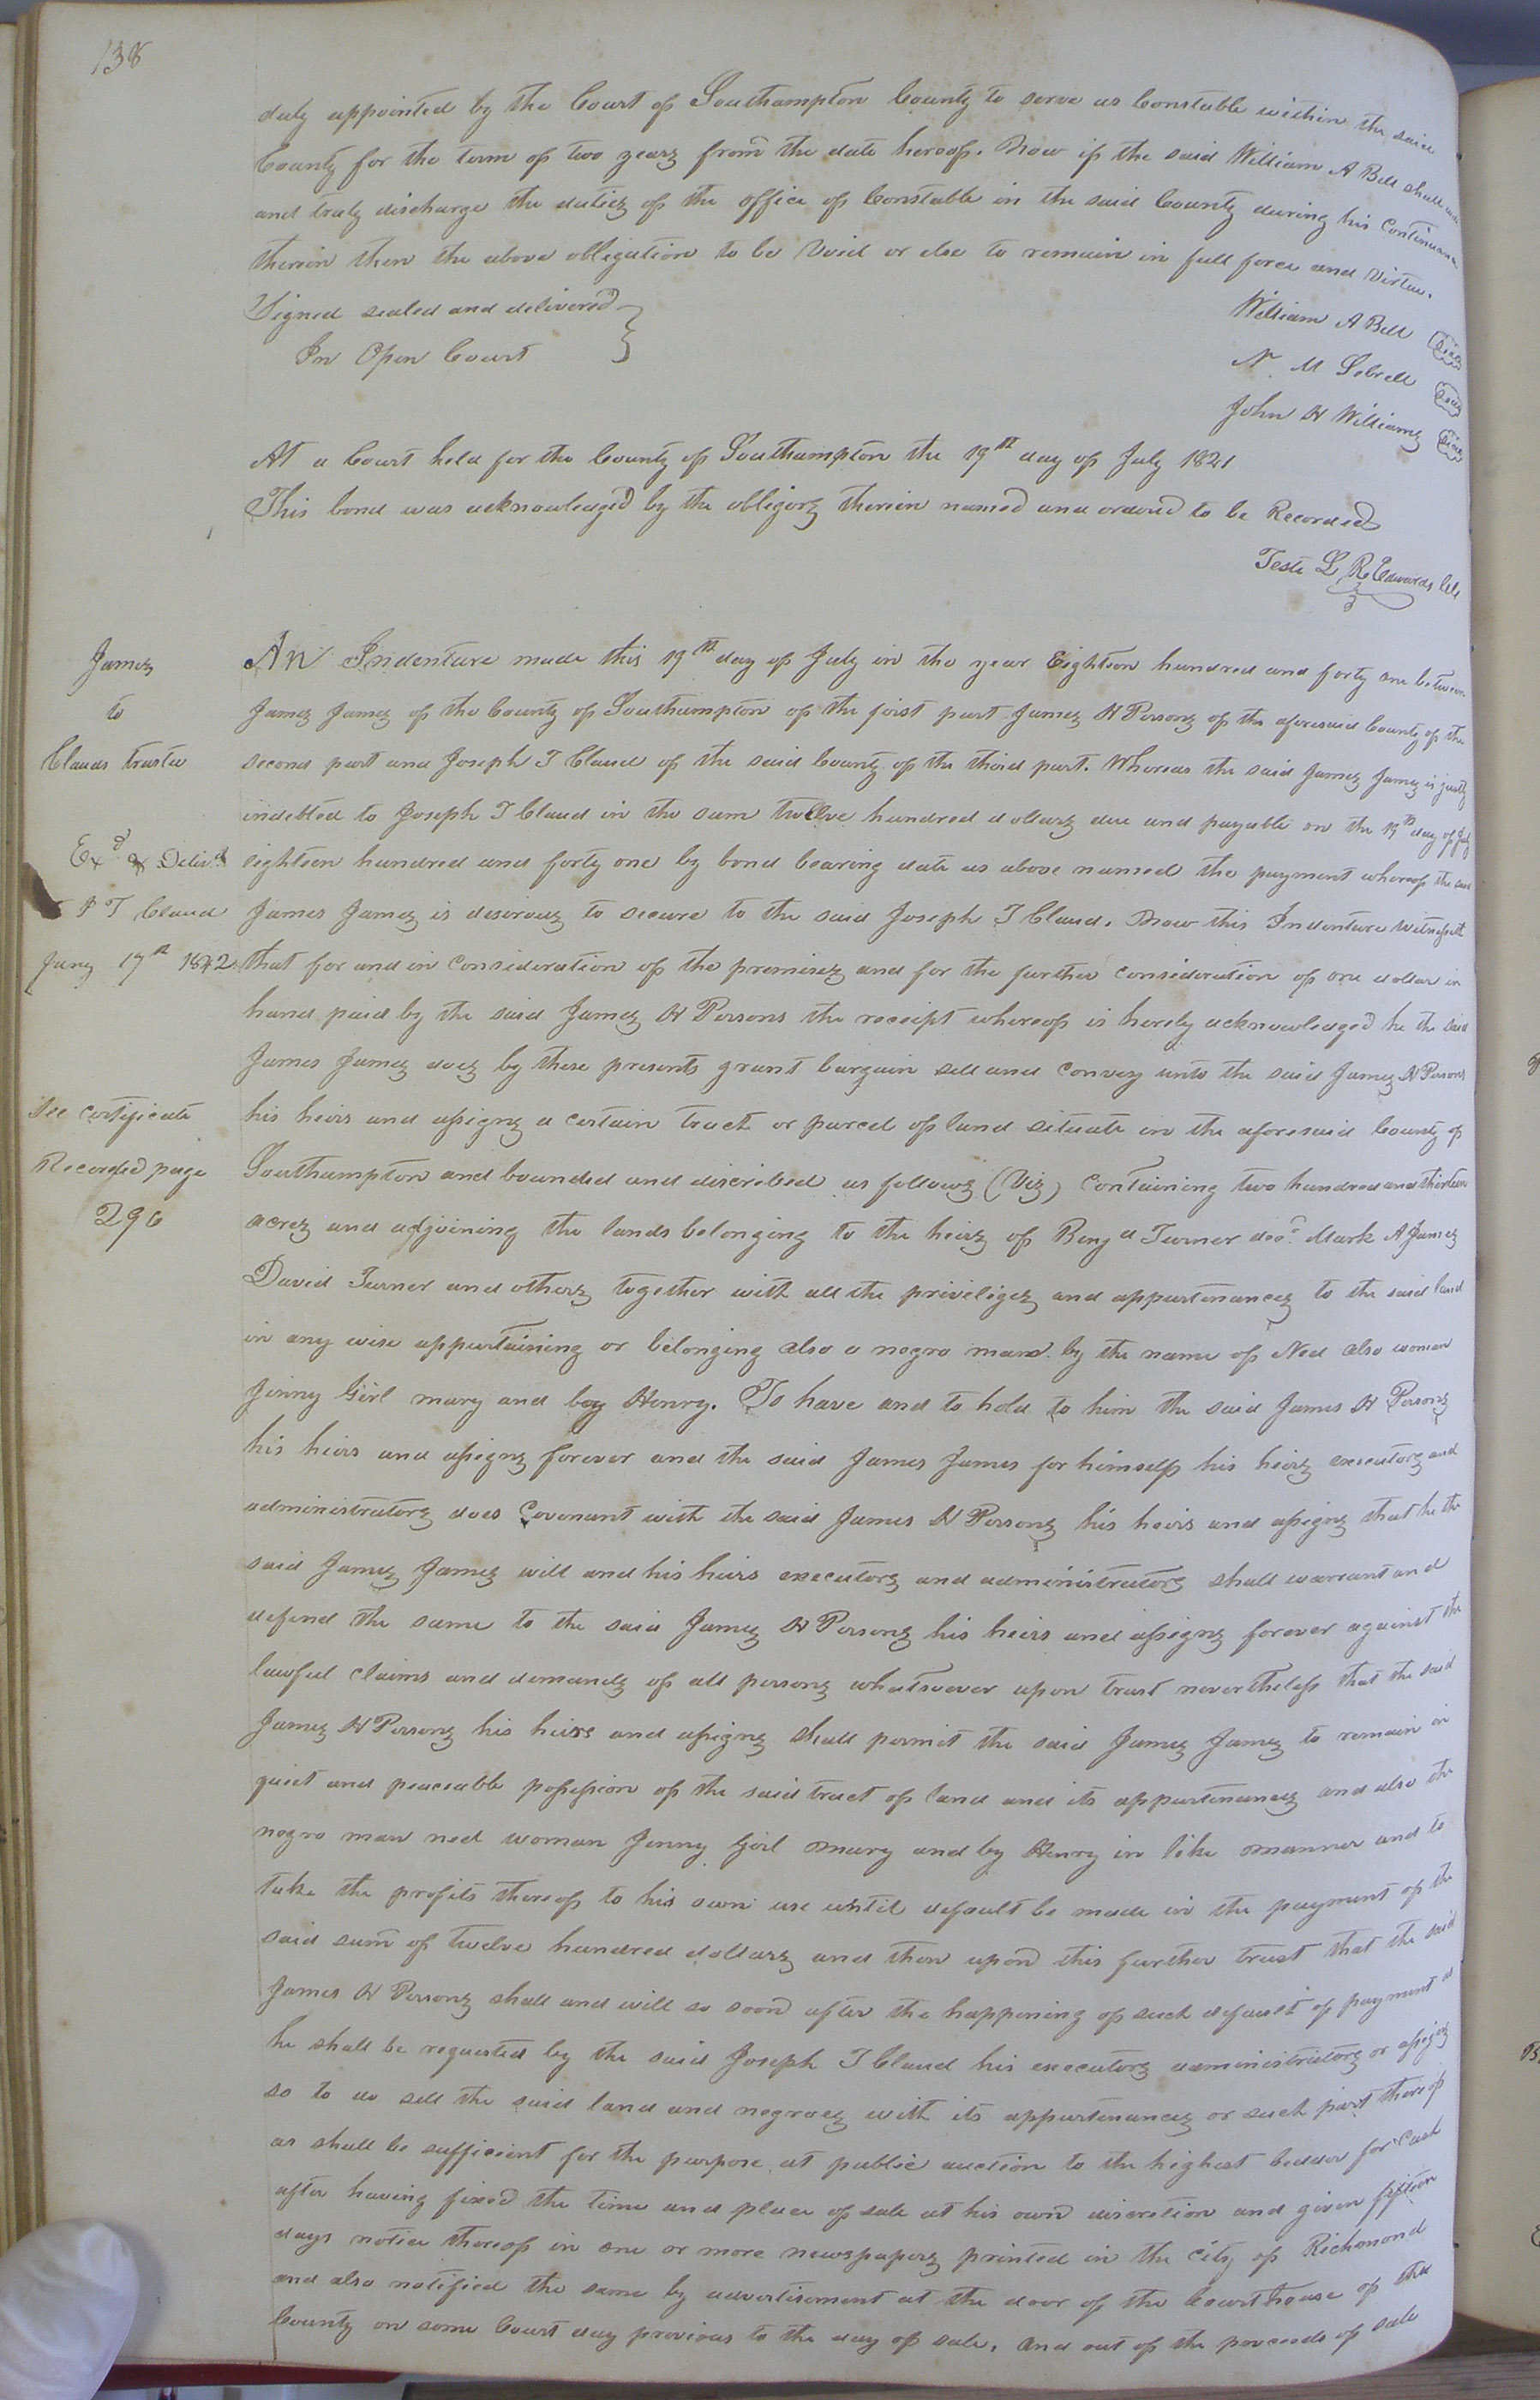 138
duly appointed by the Court of Southampton County to serve as Constable within the said
County for the term of two years from the date hereof. Now if the said William A Bell shall well
and truly discharge the duties of the office of Constable in the said County during his Continuance
therein then the above obligation to be Void or else to remain in full force and Virtue.
Signed sealed and delivered
In Open Court
William A Bell Seal
N. M Sebrell Seal
John H Williams Seal
At a Court held for the County of Southampton the 19th day of July 1841
This bond was acknowledged by the obligors therein named and ordered to be Recorded
Teste L R Edwards Clk
James
to
Clauds trustee
Exd & Delivd
J T Claud
Jany 17th 1842
See certificate
Recorded page
296
An Indenture made this 19th day of July in the year Eighteen hundred and forty one between
James James of the County of Southampton of the first part James H Persons of the aforesaid County of the
second part and Joseph T Claud of the said County of the third part. Whereas the said James James is justly
indebted to Joseph T Claud in the sum twelve hundred dollars due and payable on the 19th day of July
eighteen hundred and forty one by bond bearing date as above named the payment whereof the said
James James is desirous to secure to the said Joseph T Claud. Now this Indenture Witnesseth
that for and in Consideration of the premises and for the further consideration of one dollar in
hand paid by the said James H Persons the receipt whereof is hereby acknowledged he the said
James James does by these presents grant bargain sell and convey unto the said James H Persons
his heirs and assigns a certain tract or parcel of land situate in the aforesaid County of
Southampton and bounded and discribed as follows (Viz) Containing two hundred and thirteen
acres and adjoining the lands belonging to the heirs of Benj d Turner decd. Mark A James
David Turner and others together with all the priviliges and appurtenances to the said land
in any wise appurtaining or belonging also a negro man by the name of Ned also woman
Jinny Girl mary and boy Henry. To have and to hold to him the said James H Persons
his heirs and assigns forever and the said James James for himself his heirs executors and
administrators does Covenant with the said James H Persons his heirs and assigns that he the
said James James will and his heirs executors and administrators shall warrant and
defend the same to the said James H Persons his heirs and assigns forever against the
lawful claims and demands of all persons whatsoever upon trust nevertheless that the said
James H Persons his heirs and assigns shall permit the said James James to remain in
quiet and peaceable possession of the said tract of land and its appurtenances and also the
negro man ned woman Jinny Girl mary and by Henry in like manner and to
take the profits thereof to his own use until default be made in the payment of the
said sum of twelve hundred dollars and then upon this further trust that the said
James H Persons shall and will so soon after the happening of such default of payment as
he shall be requested by the said Joseph T Claud his executors administrators or assigns
so to do sell the said land and negroes with its appurtenances or such part thereof
as shall be sufficient for the purpose at public auction to the highest bidder for Cash
after having fixed the time and place of sale at his own discretion and given fifteen
days notice thereof in one or more newspapers printed in the City of Richmond
and also notified the same by advertisement at the door of the Courthouse of the
County on some Court day previous to the day of sale, and out of the proceeds of sale